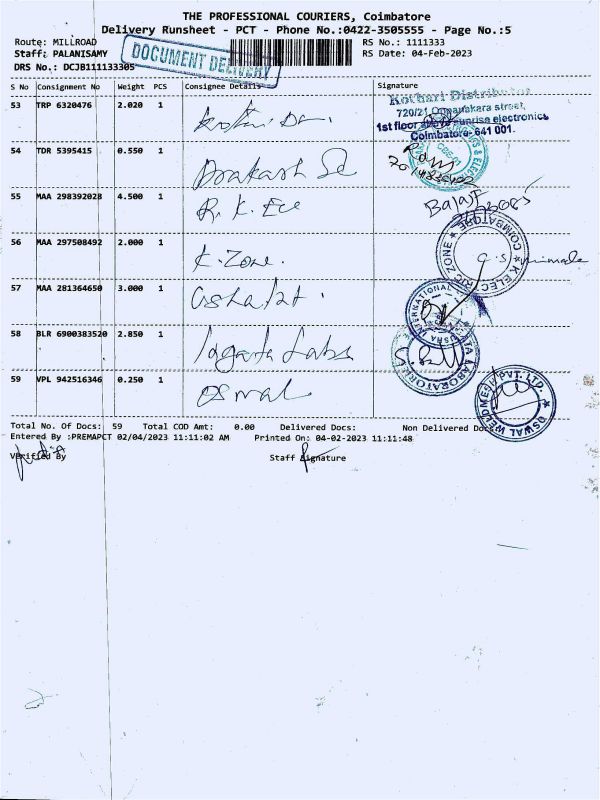 THE PROFESSIONAL COURIERS, Coimbatore
Delivery Runsheet - PCT - Phone No.:0422-3505555 - Page No.:5
Route: MILLROAD RS No.: 1111333
Staff: PALANISAMY RS Date: 04-Feb-2023
DRS No.: DCJB111133305
DOCUMENT DELIVERY
S No Consignment No Weight PCS Consignee Details Signature
53 TRP 6320476 2.020 1
Kothari Distributor
720/21 street,
1st floor above sunrise electronics
Coimbatore-641 001.
54 TDR 5395415 0.550 1 Prakash
Ram
55 MAA 298392028 4.500 1 R.K. Ele
Balaji
56 MAA 297508492 2.000 1 K. Zone.
K ELECTRIC ZONE * COIMBATORE *
57 MAA 281364650 3.000 1
INTERNATIONAL
58 BLR 6900383520 2.850 1 Labs
LABORATORIES
59 VPL 942516346 0.250 1 Oswal
* OSWAL WELDMESH PVT. LTD.
Total No. Of Docs: 59 Total COD Amt: 0.00 Delivered Docs: Non Delivered Docs:
Entered By :PREMAPCT 02/04/2023 11:11:02 AM Printed On: 04-02-2023 11:11:48
Verified By Staff Signature